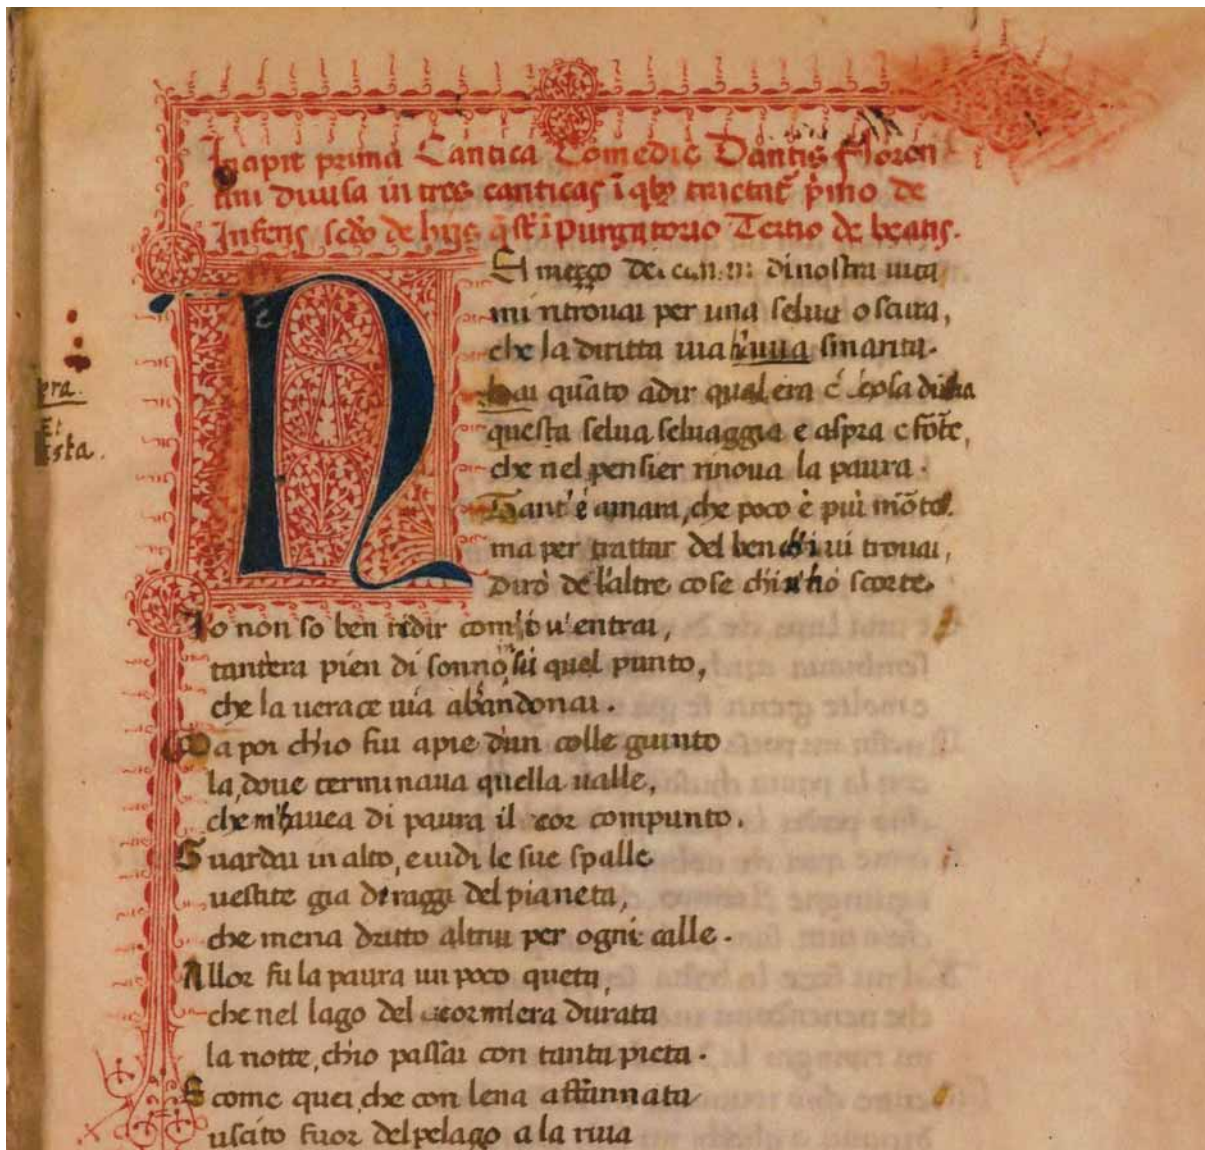 Incipit prima Cantica Comedie Dantis Floren
tini diuisa in tres canticas ĩ qbꝰ tractat᷒ p̃mo de
Inferis scđo de hijs q̃ st̃ ĩ Purgatorio Tertio de beatis.
NEl meçço del di nostra uita
mi ritrouai per una selua oscura,
che la diritta uia smarita.
hai quãto adir qual era è cosa dura
questa selua seluaggia e aspra e fõrte,
che nel pensier rinoua la paura.
Tant'è amara, che poco è più mõte.
ma per trattar del ben ui trouai,
dirò de l'altre cose scorte.
Io non so ben ridir com'i u'entrai,
tant'era pien di sonno in sù quel punto,
che la uerace uia abbandonai.
Ma poi ch'io fui a pie d'un colle giunto
la, doue terminaua quella ualle,
che m'hauea di paura il cor compunto.
Guardai in alto, e uidi le sue spalle
uestite gia de raggi del pianeta,
che mena dritto altrui per ogni calle.
Allor fu la paura un poco queta,
che nel lago del cor m'era durata
la notte, ch'io passai con tanta pieta.
E come quei, che con lena affannata
uscito fuor del pelago a la riua
era.
Et
ista.